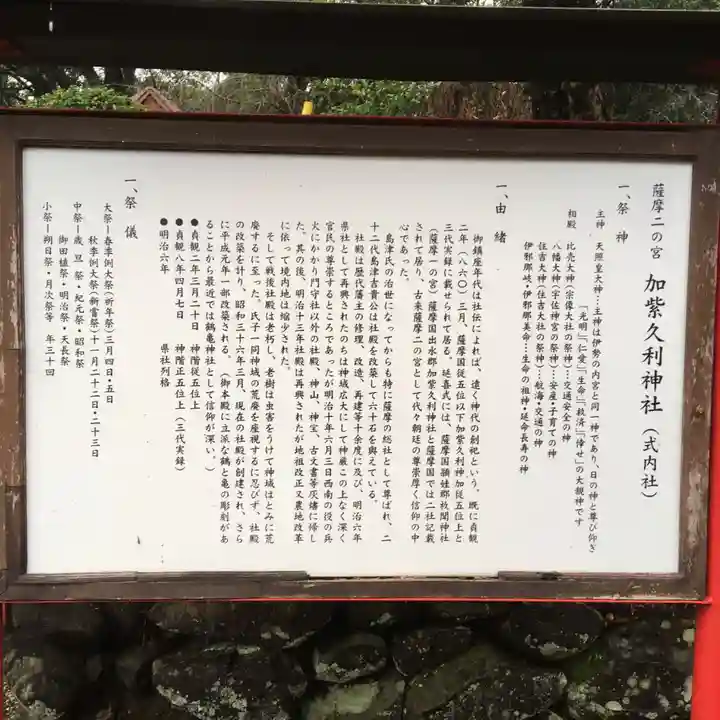 薩摩二の宮 加紫久利神社(式内社)
一、祭神
主神 天照皇大神…主神は伊勢の内宮と同一神であり、日の神と尊び仰ぎ
「光明」「仁愛」「生命」「救済」「倖せ」の大親神です
相殿 比売大神(宗像大社の祭神)…交通安全の神
八幡大神(宇佐神宮の祭神)…安産・子育ての神
住吉大神(住吉大社の祭神)…航海・交通の神
伊邪那岐・伊邪那美命…生命の祖神・延命長寿の神
一、由緒
御鎮座年代は社伝によれば、遠く神代の創祀という。既に貞観
二年(八六〇)三月、薩摩国従五位以下加紫久利神加従五位上と
三代実録に載せられて居る。延喜式には、薩摩国頴娃郡枚聞神社
(薩摩一の宮)薩摩国出水郡加紫久利神社と薩摩国では二社記載
されて居り、古来薩摩二の宮として代々朝廷の尊崇厚く信仰の中
心であった。
島津氏の治世になってからも特に薩摩の総社として尊ばれ、二
十二代島津吉貴公は社殿を改築して六十石を與えている。
社殿は歴代藩主の修理、改造、再建等十余度に及び、明治六年
県社として再興されたのちは神域広大にして神厳この上なく深く
官民の尊崇するところであったが明治十年六月三日西南の役の兵
火にかかり門守社以外の社殿、神山、神宝、古文書等灰燼に帰し
た。其の後、明治十三年社殿は再興されたが地祖改正又農地改革
に依って境内地は縮少された。
そして戦後社殿は老朽し、老樹は虫害をうけて神域はとみに荒
廃するに至った。氏子一同神域の荒廃を座視するに忍びず、社殿
の改築を計り、昭和三十六年三月、現在の社殿が創建され、さら
に平成元年一部改築される。(御本殿に立派な鶴と亀の彫刻があ
ることから最近では鶴亀神社として信仰が深い。)
●貞観二年三月二十日 神階従五位上
●貞観八年四月七日 神階正五位上(三代実録)
●明治六年 県社列格
一、祭儀
大祭ー春季例大祭(祈年祭)三月四日・五日
秋季例大祭(新嘗祭)十一月二十二日・二十三日
中祭ー歳旦祭・紀元祭・昭和祭
御田植祭・明治祭・天長祭
小祭ー朔日祭・月次祭等 年三十回